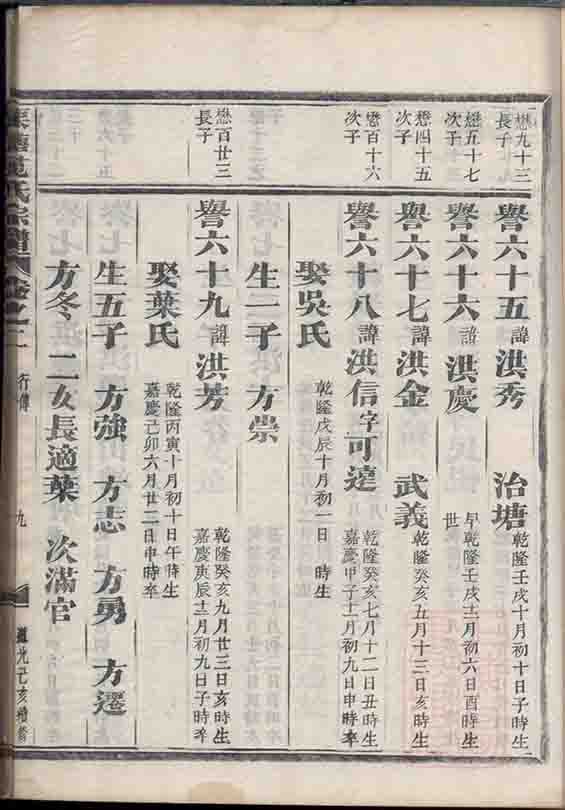 懋九十三長子
譽六十五諱洪秀 治塘 乾隆壬戌十月初十日子時生
懋五十七次子
譽六十六諱洪慶 早世 乾隆壬戌十二月初六日酉時生
懋四十五次子
譽六十七諱洪金 武義 乾隆癸亥五月十三日亥時生
懋百十六次子
譽六十八諱洪信字可達 乾隆癸亥七月十二日丑時生 嘉慶甲子十一月初九日申時卒
娶吳氏 乾隆戊辰十月初一日 時生
生一子 方崇
懋百廿三長子
譽六十九諱洪芳 乾隆癸亥九月廿三日亥時生 嘉慶庚辰十二月初九日子時卒
娶葉氏 乾隆丙寅十月初十日午時生 嘉慶己卯六月廿二日申時卒
生五子 方強 方志 方勇 方遷
方冬 二女長適葉 次滿官
氏宗譜 卷之二 行傳 九 道光己亥增修